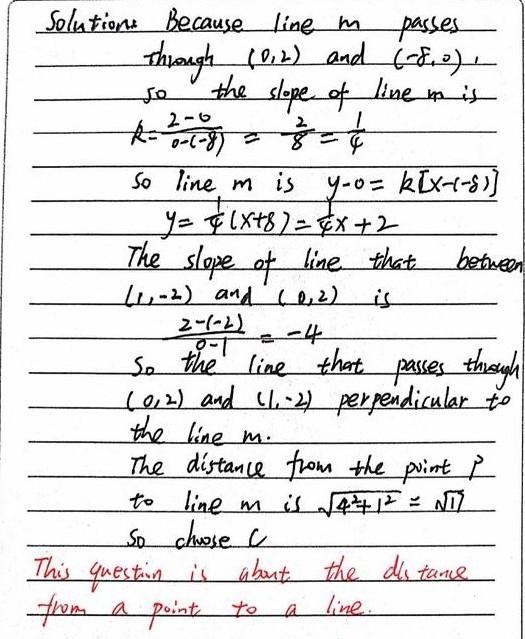 Solution: Because line m passes
through (0,2) and (-8,0),
so the slope of line m is
k = \frac{2-0}{0-(-8)} = \frac{2}{8} = \frac{1}{4}
So line m is y-0 = k[x-(-8)]
y = \frac{1}{4}(x+8) = \frac{1}{4}x + 2
The slope of line that between
(1,-2) and (0,2) is
\frac{2-(-2)}{0-1} = -4
So the line that passes through
(0,2) and (1,-2) perpendicular to
the line m.
The distance from the point P
to line m is \sqrt{4^2+1^2} = \sqrt{17}
So choose C
This question is about the distance
from a point to a line.